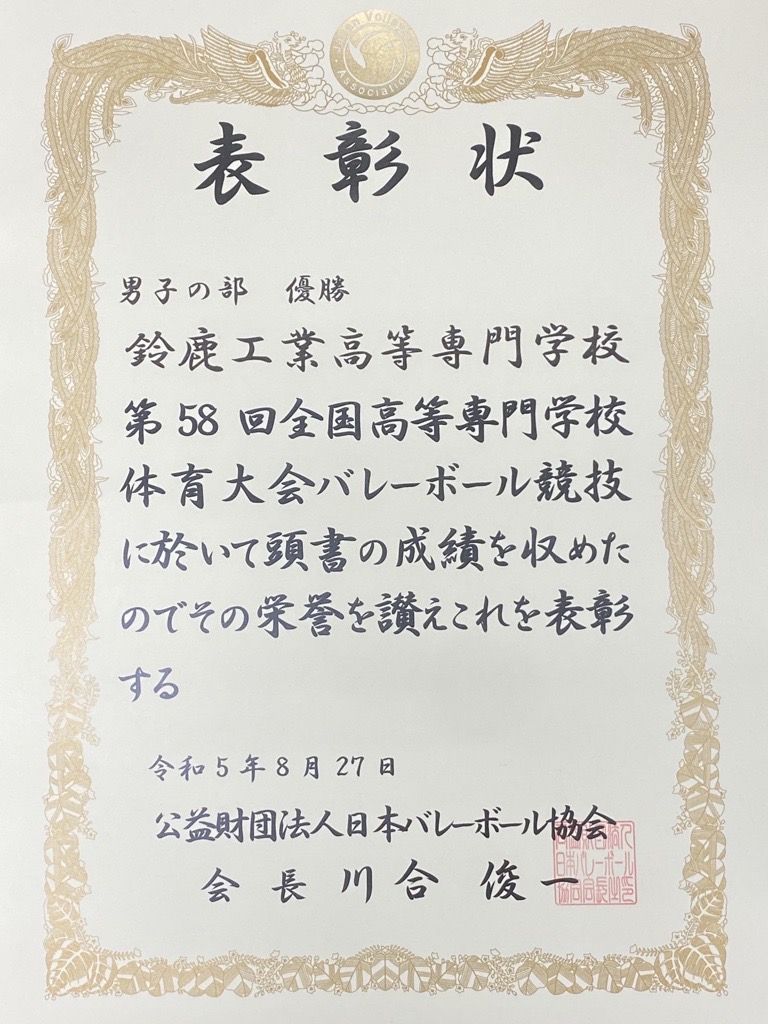 表彰状
男子の部 優勝
鈴鹿工業高等専門学校
第58回全国高等専門学校
体育大会バレーボール競技
に於いて頭書の成績を収めた
のでその栄誉を讃えこれを表彰
する
令和5年8月27日
公益財団法人日本バレーボール協会
会長 川合 俊一